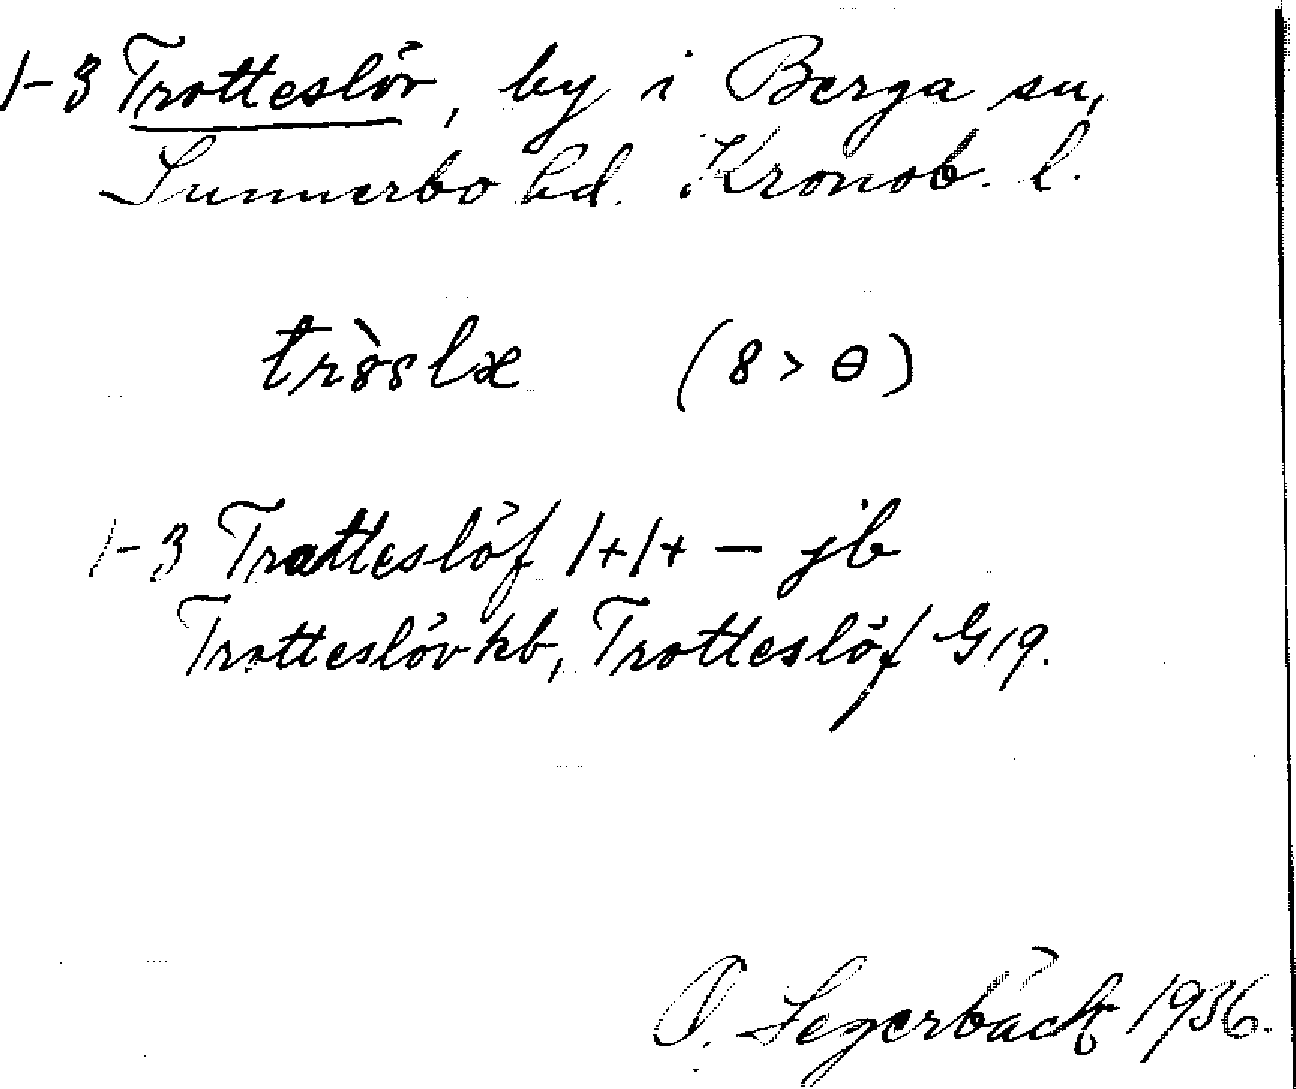 1-3 Trotteslöv, by i Berga sn,
Sunnerbo hd. Kronob. l.
tr8̀slæ (8 > ɵ)
1-3 Tratteslöf 1+1+ – jb
Trotteslöv kb, Trotteslöf G 19.
O. Segerbäck 1936.